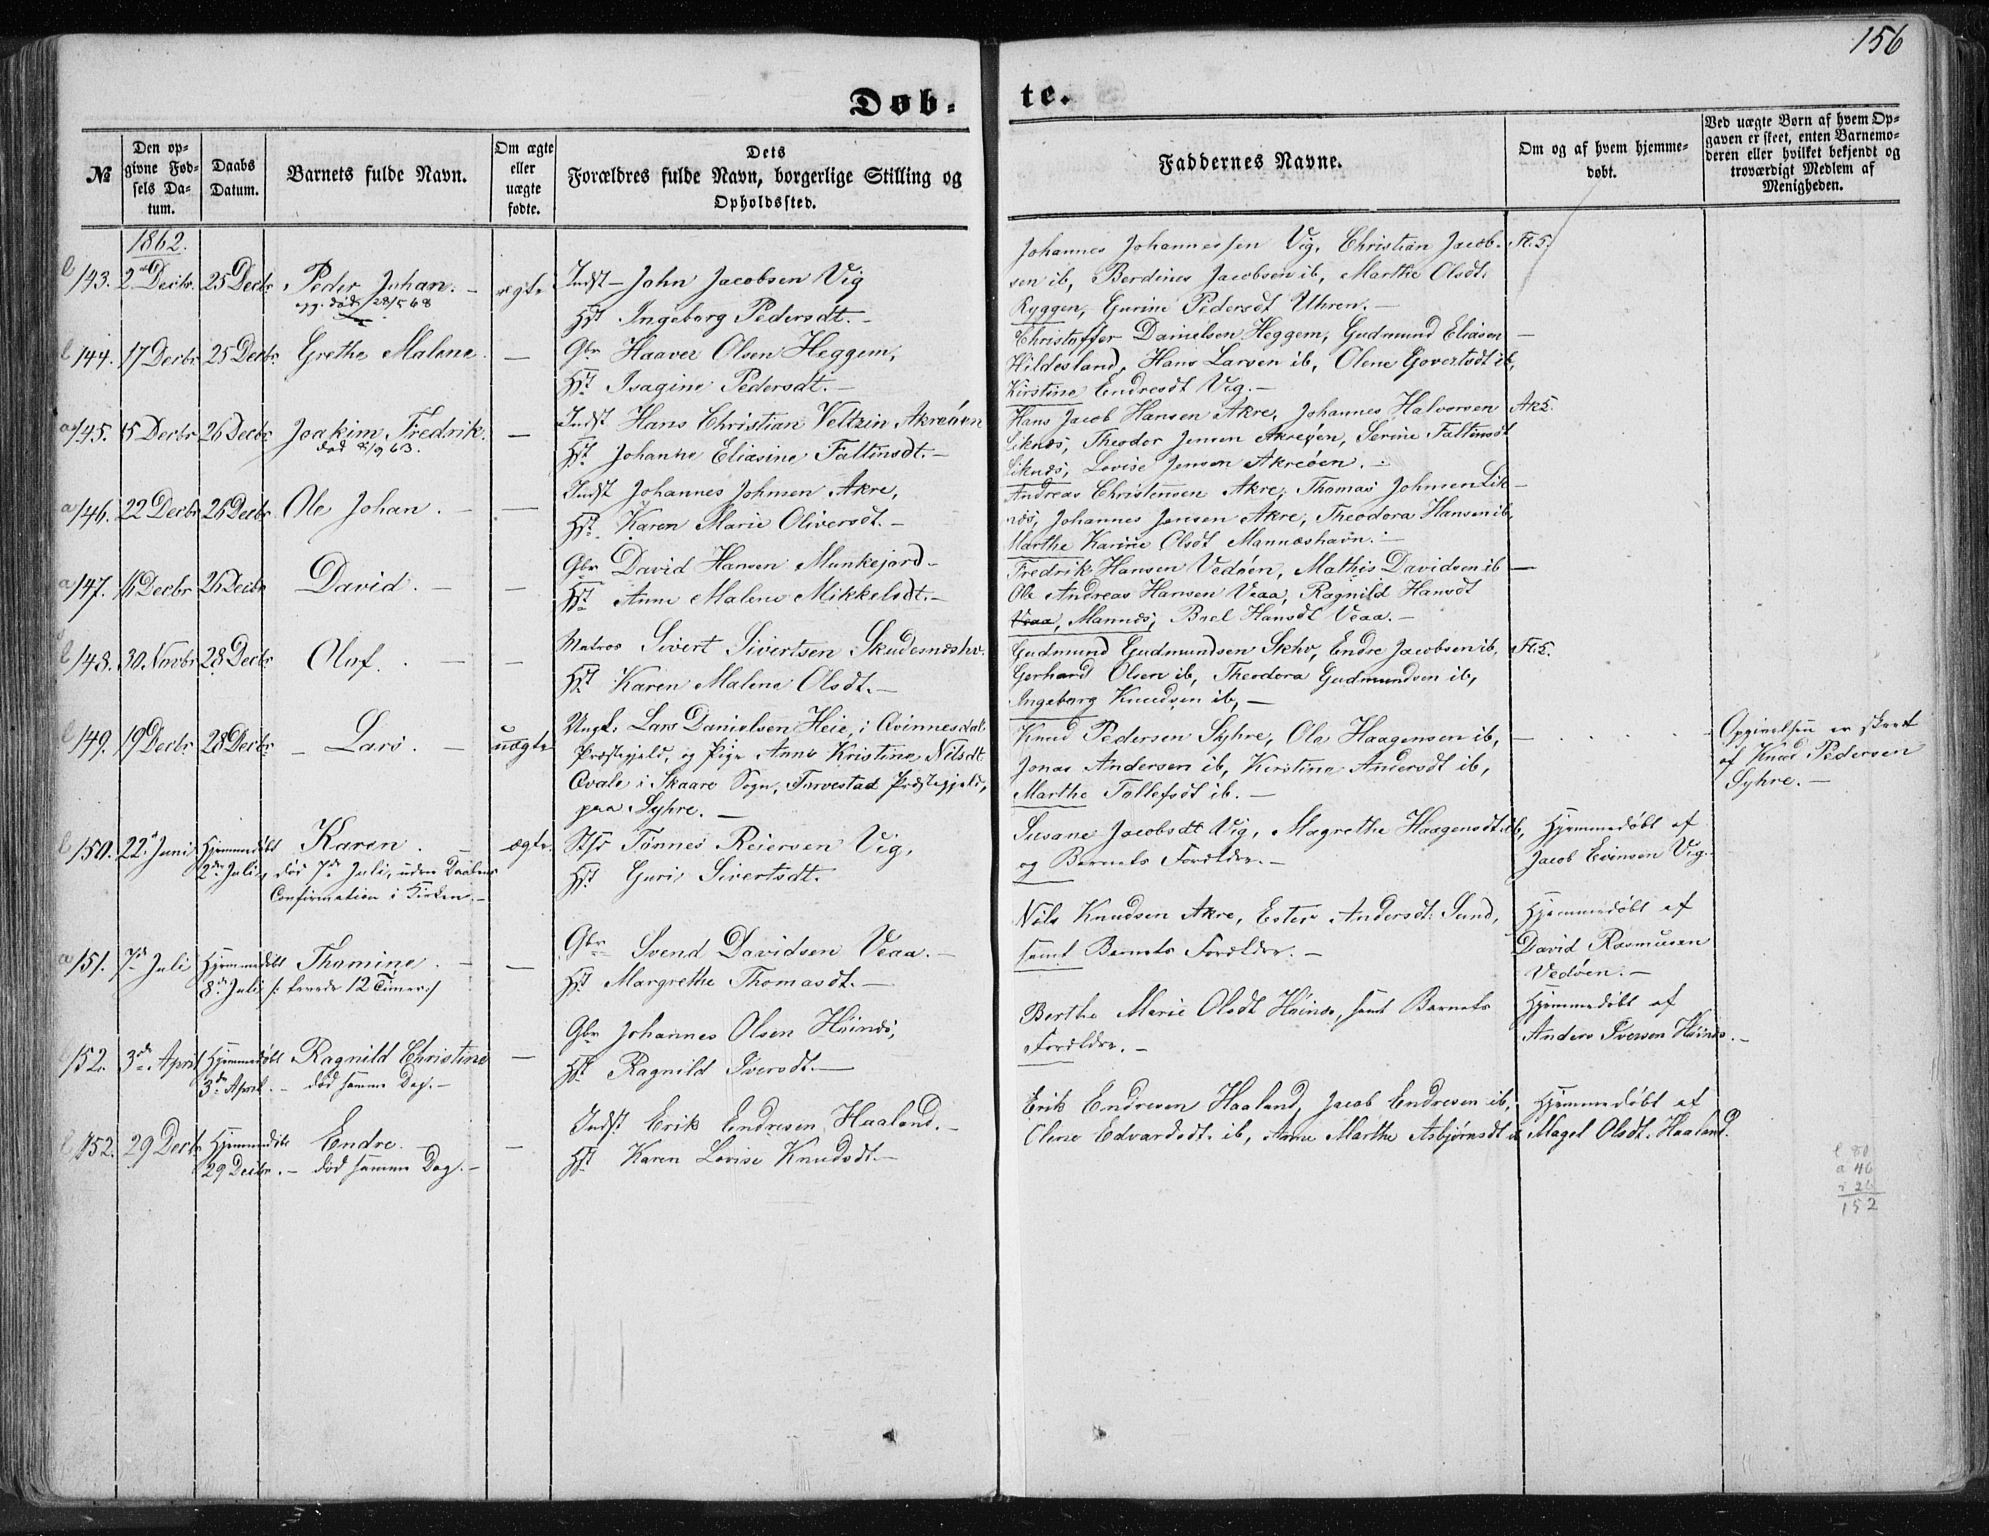 156
Døb-
te.
№
Den op-
givne Fød-
sels Da-
tum.
Daabs
Datum.
Barnets fulde Navn.
Om ægte
eller
uægte
fødte.
Dets
Forældres fulde Navn, borgerlige Stilling og
Opholdssted.
Faddernes Navne.
Om og af hvem hjemme-
døbt.
Ved uægte Børn af hvem Op-
gaven er skeet, enten Barnemo-
deren eller hvilket bekjendt og
troværdigt Medlem af
Menigheden.
1862.
143. 2 Decbr. 25 Decbr. Peder Johan. – ægte Indst – John Jacobsen Vig
død 28/5 68
Hst Ingeborg Pedersdt. –
Johannes Johannessen Vig, Christian Jacob-
sen ib, Berdines Jacobsen ib, Marthe Olsdt.
Ryggen, Gurine Pedersdt Uhren. –
144. 17 Decbr 25 Decbr. Grethe Malene. – Gbr Haaver Olsen Heggem,
Hst Isagine Pedersdt. –
Christoffer Danielsen Heggem, Gudmund Eliasen –
Hildesland, Hans Larsen ib, Olene Govertsdt ib,
Kirstine Endresdt Vig. –
a 145. 15 Decbr 26 Decbr. Joakim Fredrik. – Indst Hans Christian Veltzin Akreøen
Hst. Johanne Eliasine Faltinsdt. –
Hans Jacob Hansen Akre, Johannes Halvorsen
Liknæs, Theodor Jensen Akreøen, Serine Faltinsdt
Liknæs, Lovise Jensen Akreøen. –
a 146. 22 Decbr 26 Decbr Ole Johan. – – Indst Johannes Johnsen Akre,
Hst. Karen Marie Oliversdt. –
Andreas Christensen Akre, Thomas Johnsen Lik-
næs, Johannes Jensen Akre, Theodora Hansen ib,
Marthe Karine Olsdt Mannæshavn. –
a 147. 16 Decbr 26 Decbr David. – – Gbr David Hansen Munkejord –
Hst Anne Malene Mikkelsdt. –
Fredrik Hansen Vedøen, Mathis Davidsen ib –
Ole Andreas Hansen Veaa, Ragnild Hansdt
Veaa, Mannæs, Brel Hansdt Veaa. –
148. 30 Novbr 28 Decbr Olaf. – – Matros Sivert Sivertsen Skudesnæshv.
Hst Karen Malene Olsdt. –
Gudmund Gudmundsen Skhv, Endre Jacobsen ib,
Gerhard Olsen ib, Theodora Gudmundsen ib,
Ingeborg Knudsen ib, –
149. 19 Decbr 28 Decbr – Lars. – uægte Ungk. Lars Danielsen Heie, i Qvinnesdal
Præstegjeld, og Pige Anne Kristine Nilsdt
Qvale i Skaare Sogn, Torvestad Præstegjeld,
paa Syhre. –
Knud Pedersen Syhre, Ole Haagensen ib,
Jonas Andersen ib, Kirstine Andersdt ib,
Marthe Tollefsdt ib. –
Opgivelsen er skeet
af Knud Pedersen
Syhre. –
150. 22 Juni Hjemmedøbt Karen. – ægte. Tønnes Reiersen Vig,
2den Juli, død 7de Juli, uden Daabens
Confirmation i Kirken. –
Hst Guri Sivertsdt.
Susane Jacobsdt Vig, Magrethe Haagensdt ib,
og Barnets Forældre. –
Hjemmedøbt af
Jacob Evinsen Vig.
a 151. 7de Juli Hjemmedøbt Thomine. – – Gbr Svend Davidsen Veaa. –
8de Juli /: levede 12 Timer :/
Hst Margrethe Thomasdt. –
Nils Knudsen Akre, Ester Andersdt. Sund,
samt Barnets Forældre. –
Hjemmedøbt af
David Rasmusen
Vedøen. –
152. 3de April Hjemmedøbt Ragnild Christine – Gbr Johannes Olsen Høinæs,
3de April. – død samme Dag. –
Hst Ragnild Iversdt. –
Berthe Marie Olsdt Høinæs, samt Barnets
Forældre. –
Hjemmedøbt af
Anders Iversen Høinæs. –
152. 29 Decbr Hjemmedøbt Endre. – – Indst Erik Endresen Haaland. –
29 Decbr. – død samme Dag. –
Hst Karen Lovise Knudsdt. –
Erik Endresen Haaland, Jacob Endresen ib,
Olene Edvardsdt. ib, Anne Marthe Asbjørnsdt
Hjemmedøbt af
Magel Olsdt. Haaland.
80
a 46
26
152